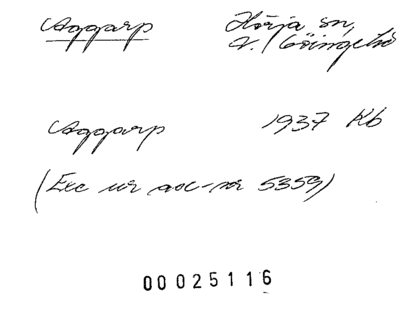 Aggarp Hörja sn,
V. Göinge hd
Aggarp 1937 Kb
(Exc ur acc-nr 5359)
00025116